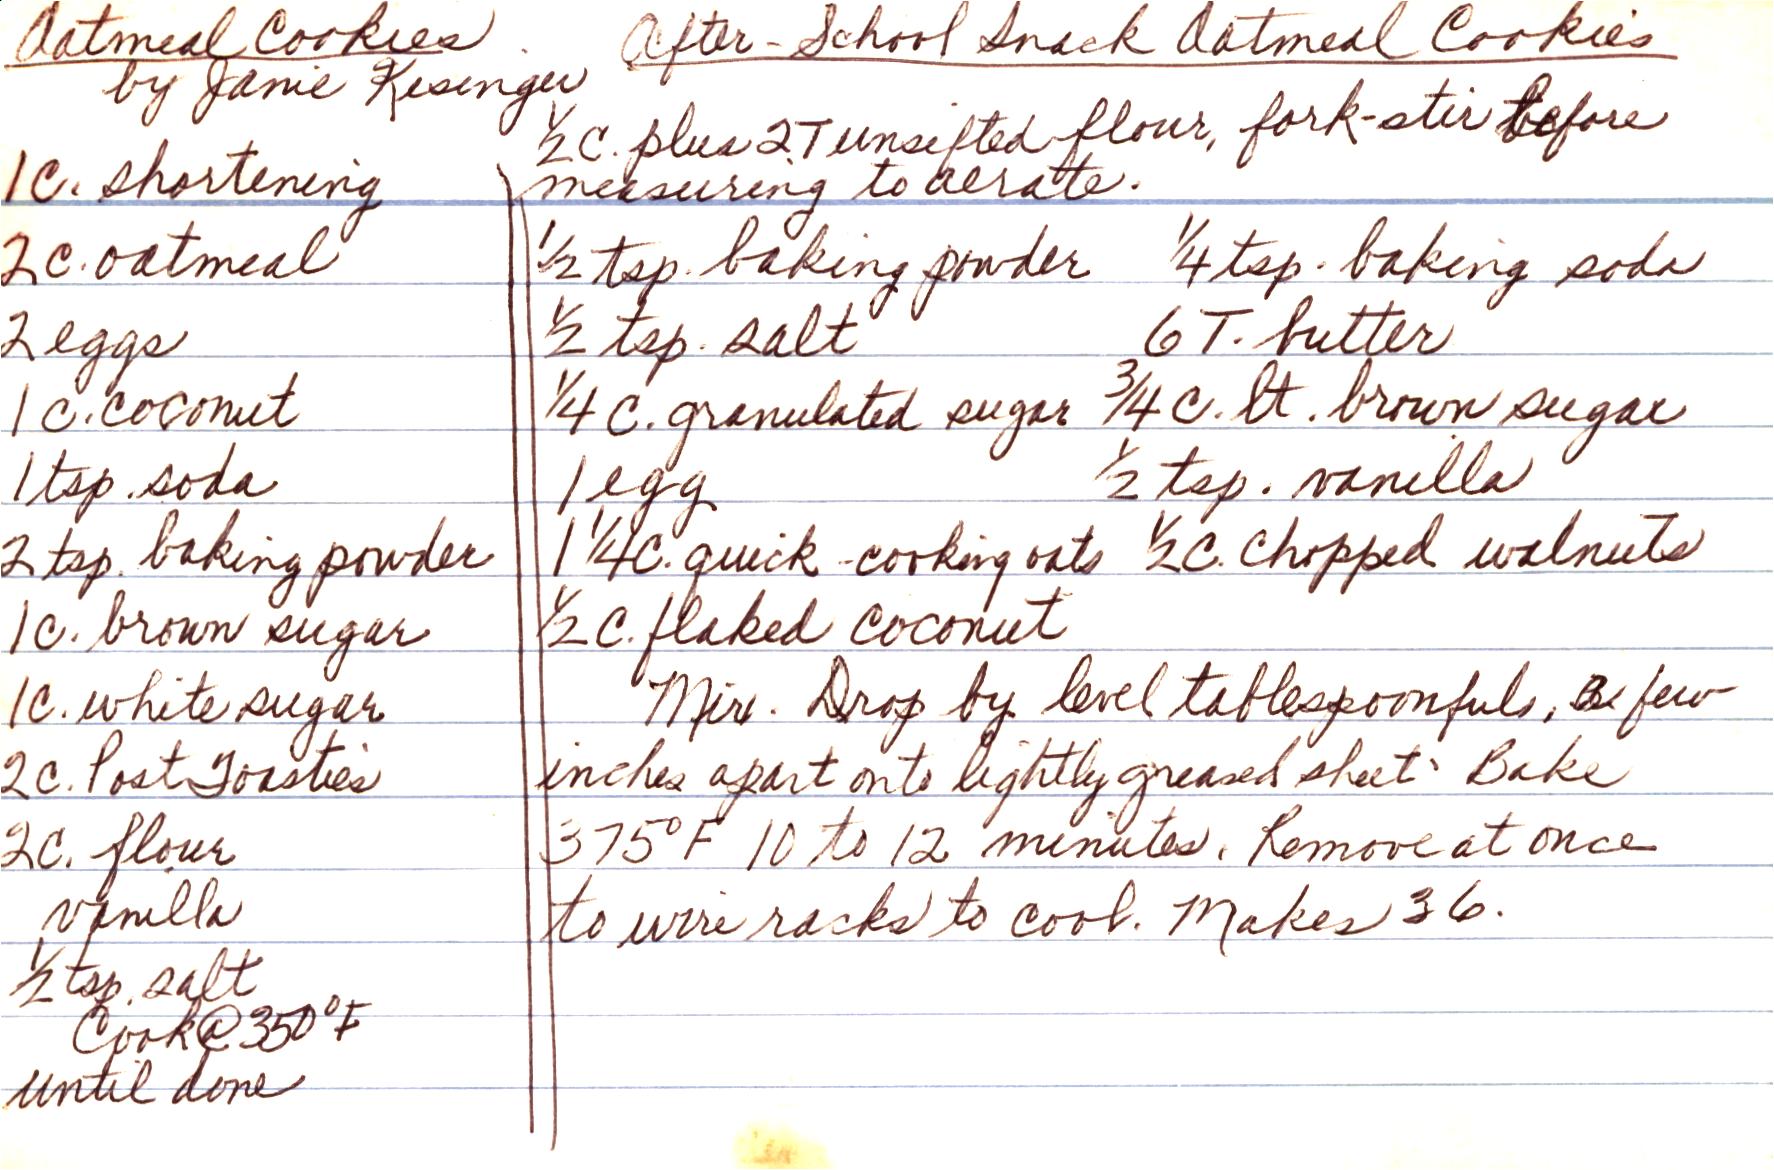 Oatmeal Cookies
by Janie Kesinger
1 c. shortening
2 c. oatmeal
2 eggs
1 c. coconut
1 tsp. soda
2 tsp. baking powder
1 c. brown sugar
1 c. white sugar
2 c. Post Toasties
2 c. flour
vanilla
1/2 tsp. salt
Cook @ 350°F
until done
After-School Snack Oatmeal Cookies
1/2 c. plus 2 T unsifted flour, fork-stir before
measuring to aerate.
1/2 tsp. baking powder 1/4 tsp. baking soda
1/2 tsp. salt 6 T. butter
1/4 c. granulated sugar 3/4 c. lt. brown sugar
1 egg 1/2 tsp. vanilla
1 1/4 c. quick-cooking oats 1/2 c. chopped walnuts
1/2 c. flaked coconut
Mix. Drop by level tablespoonfuls, a few
inches apart onto lightly greased sheet. Bake
375°F 10 to 12 minutes. Remove at once
to wire racks to cool. Makes 36.